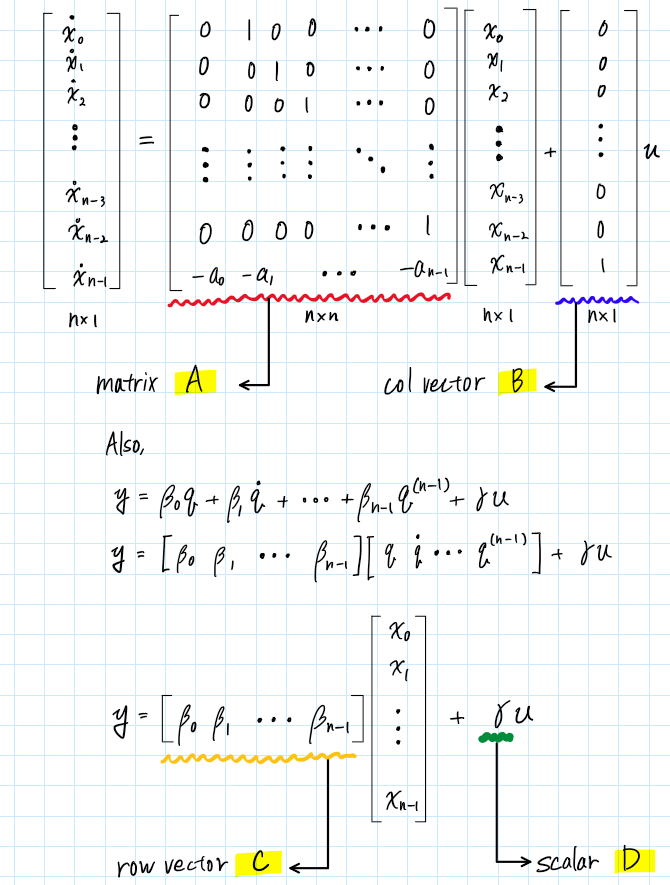 [ẋ₀ ẋ₁ ẋ₂ ⋮ ẋₙ₋₃ ẋₙ₋₂ ẋₙ₋₁] = [0 1 0 0 ⋯ 0
0 0 1 0 ⋯ 0
0 0 0 1 ⋯ 0
⋮ ⋮ ⋮ ⋮ ⋱ ⋮
0 0 0 0 ⋯ 1
-a₀ -a₁ ⋯ -aₙ₋₁] [x₀ x₁ x₂ ⋮ xₙ₋₃ xₙ₋₂ xₙ₋₁] + [0 0 0 ⋮ 0 0 1] u
n×1 n×n n×1 n×1
matrix A col vector B
Also,
y = β₀q + β₁q̇ + ⋯ + βₙ₋₁q⁽ⁿ⁻¹⁾ + γu
y = [β₀ β₁ ⋯ βₙ₋₁][q q̇ ⋯ q⁽ⁿ⁻¹⁾] + γu
y = [β₀ β₁ ⋯ βₙ₋₁] [x₀ x₁ ⋮ xₙ₋₁] + γu
row vector C scalar D